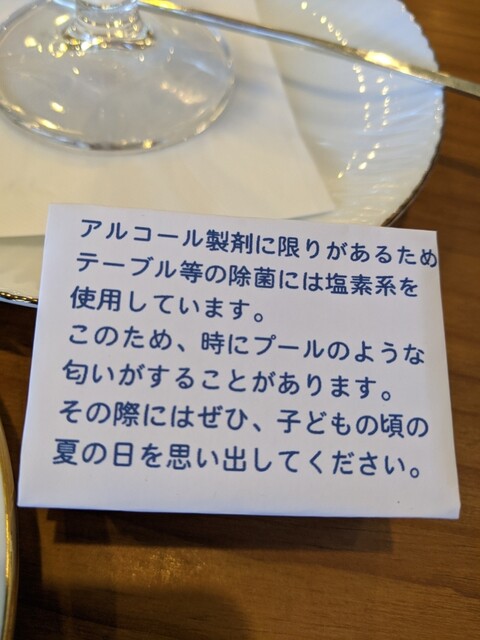 アルコール製剤に限りがあるため
テーブル等の除菌には塩素系を
使用しています。
このため、時にプールのような
匂いがすることがあります。
その際にはぜひ、子どもの頃の
夏の日を思い出してください。